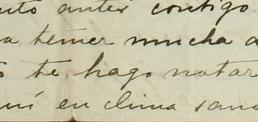 antes contigo.
a temer mucha a
te hago notar
en clima sano